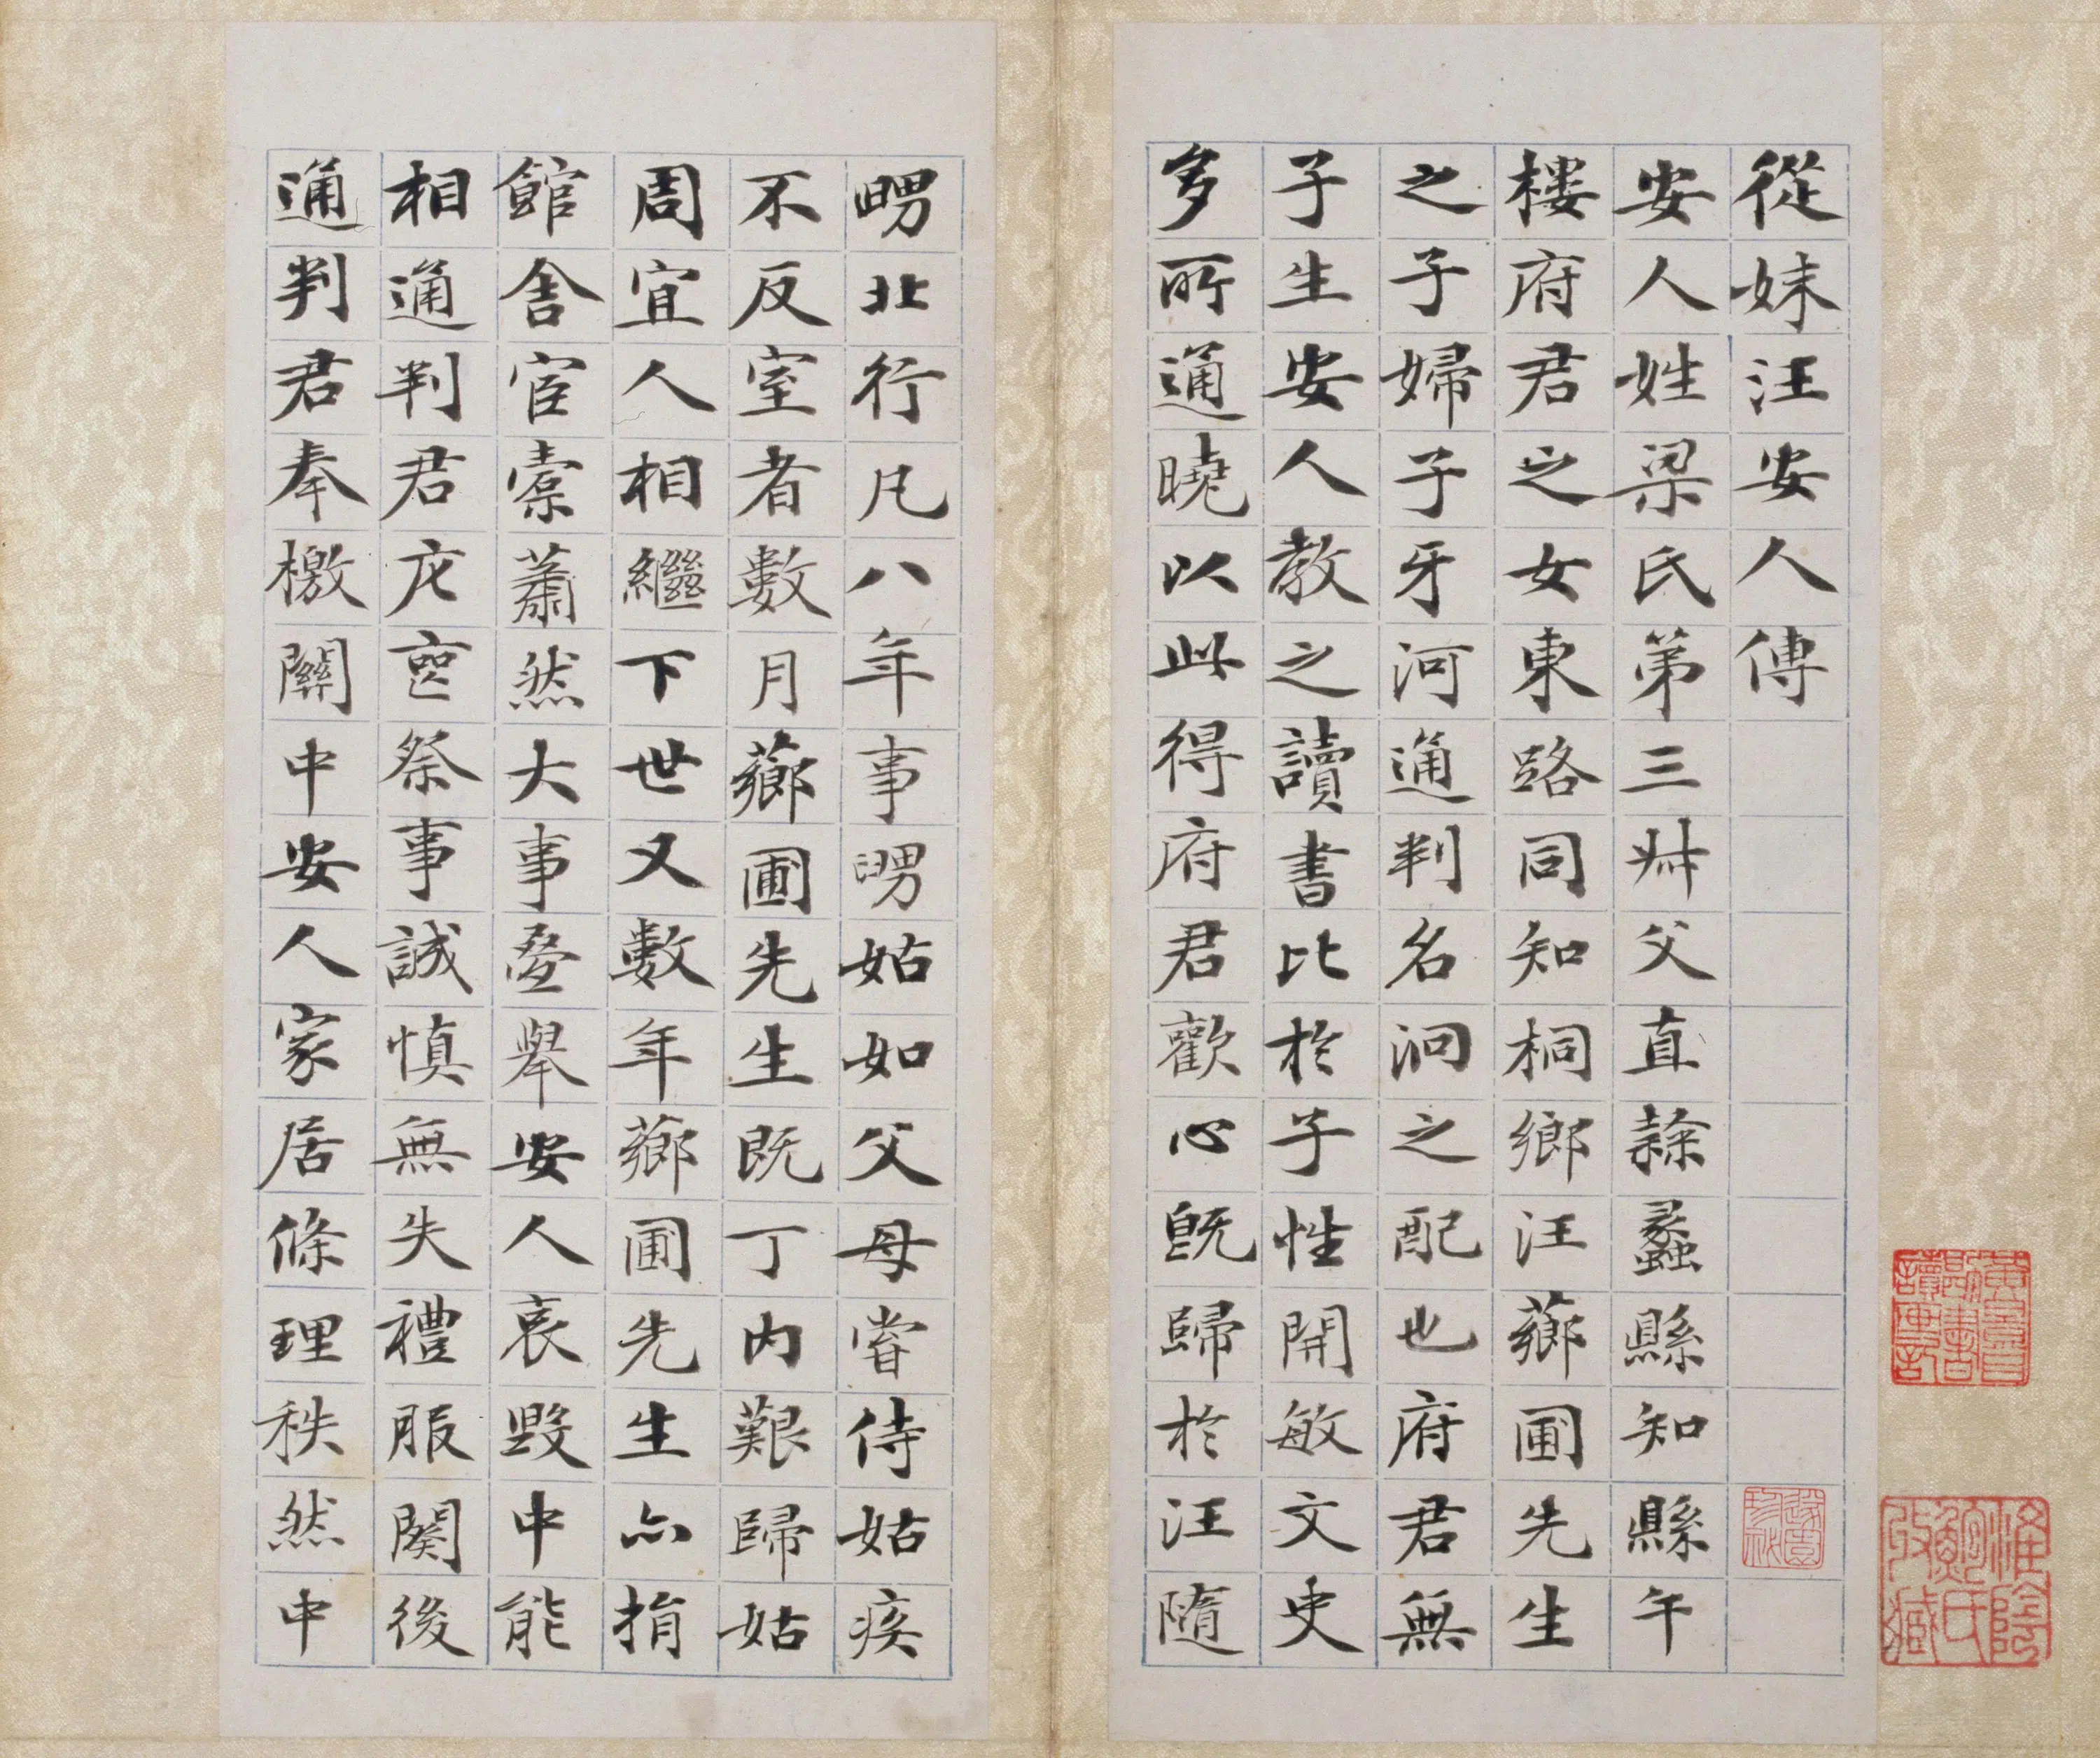 從妹汪安人傳
安人姓梁氏弟三叔父直隸蠡縣知縣午
樓府君之女東路同知桐鄉汪薌圃先生
之子婦子子牙河通判名泂之配也府君無
子生安人教之讀書比於子性開敏文史
多所通曉以此得府君歡心既歸於汪隨
舅北行凡八年事舅姑如父母嘗侍姑疾
不反室者數月薌圃先生既丁內艱歸姑
周宜人相繼下世又數年薌圃先生亦捐
館舍宦橐蕭然大事疊舉安人哀毀中能
相通判君庀喪祭事誠慎無失禮服闋後
通判君奉檄關中安人家居條理秩然中
淮陰鮑氏收藏